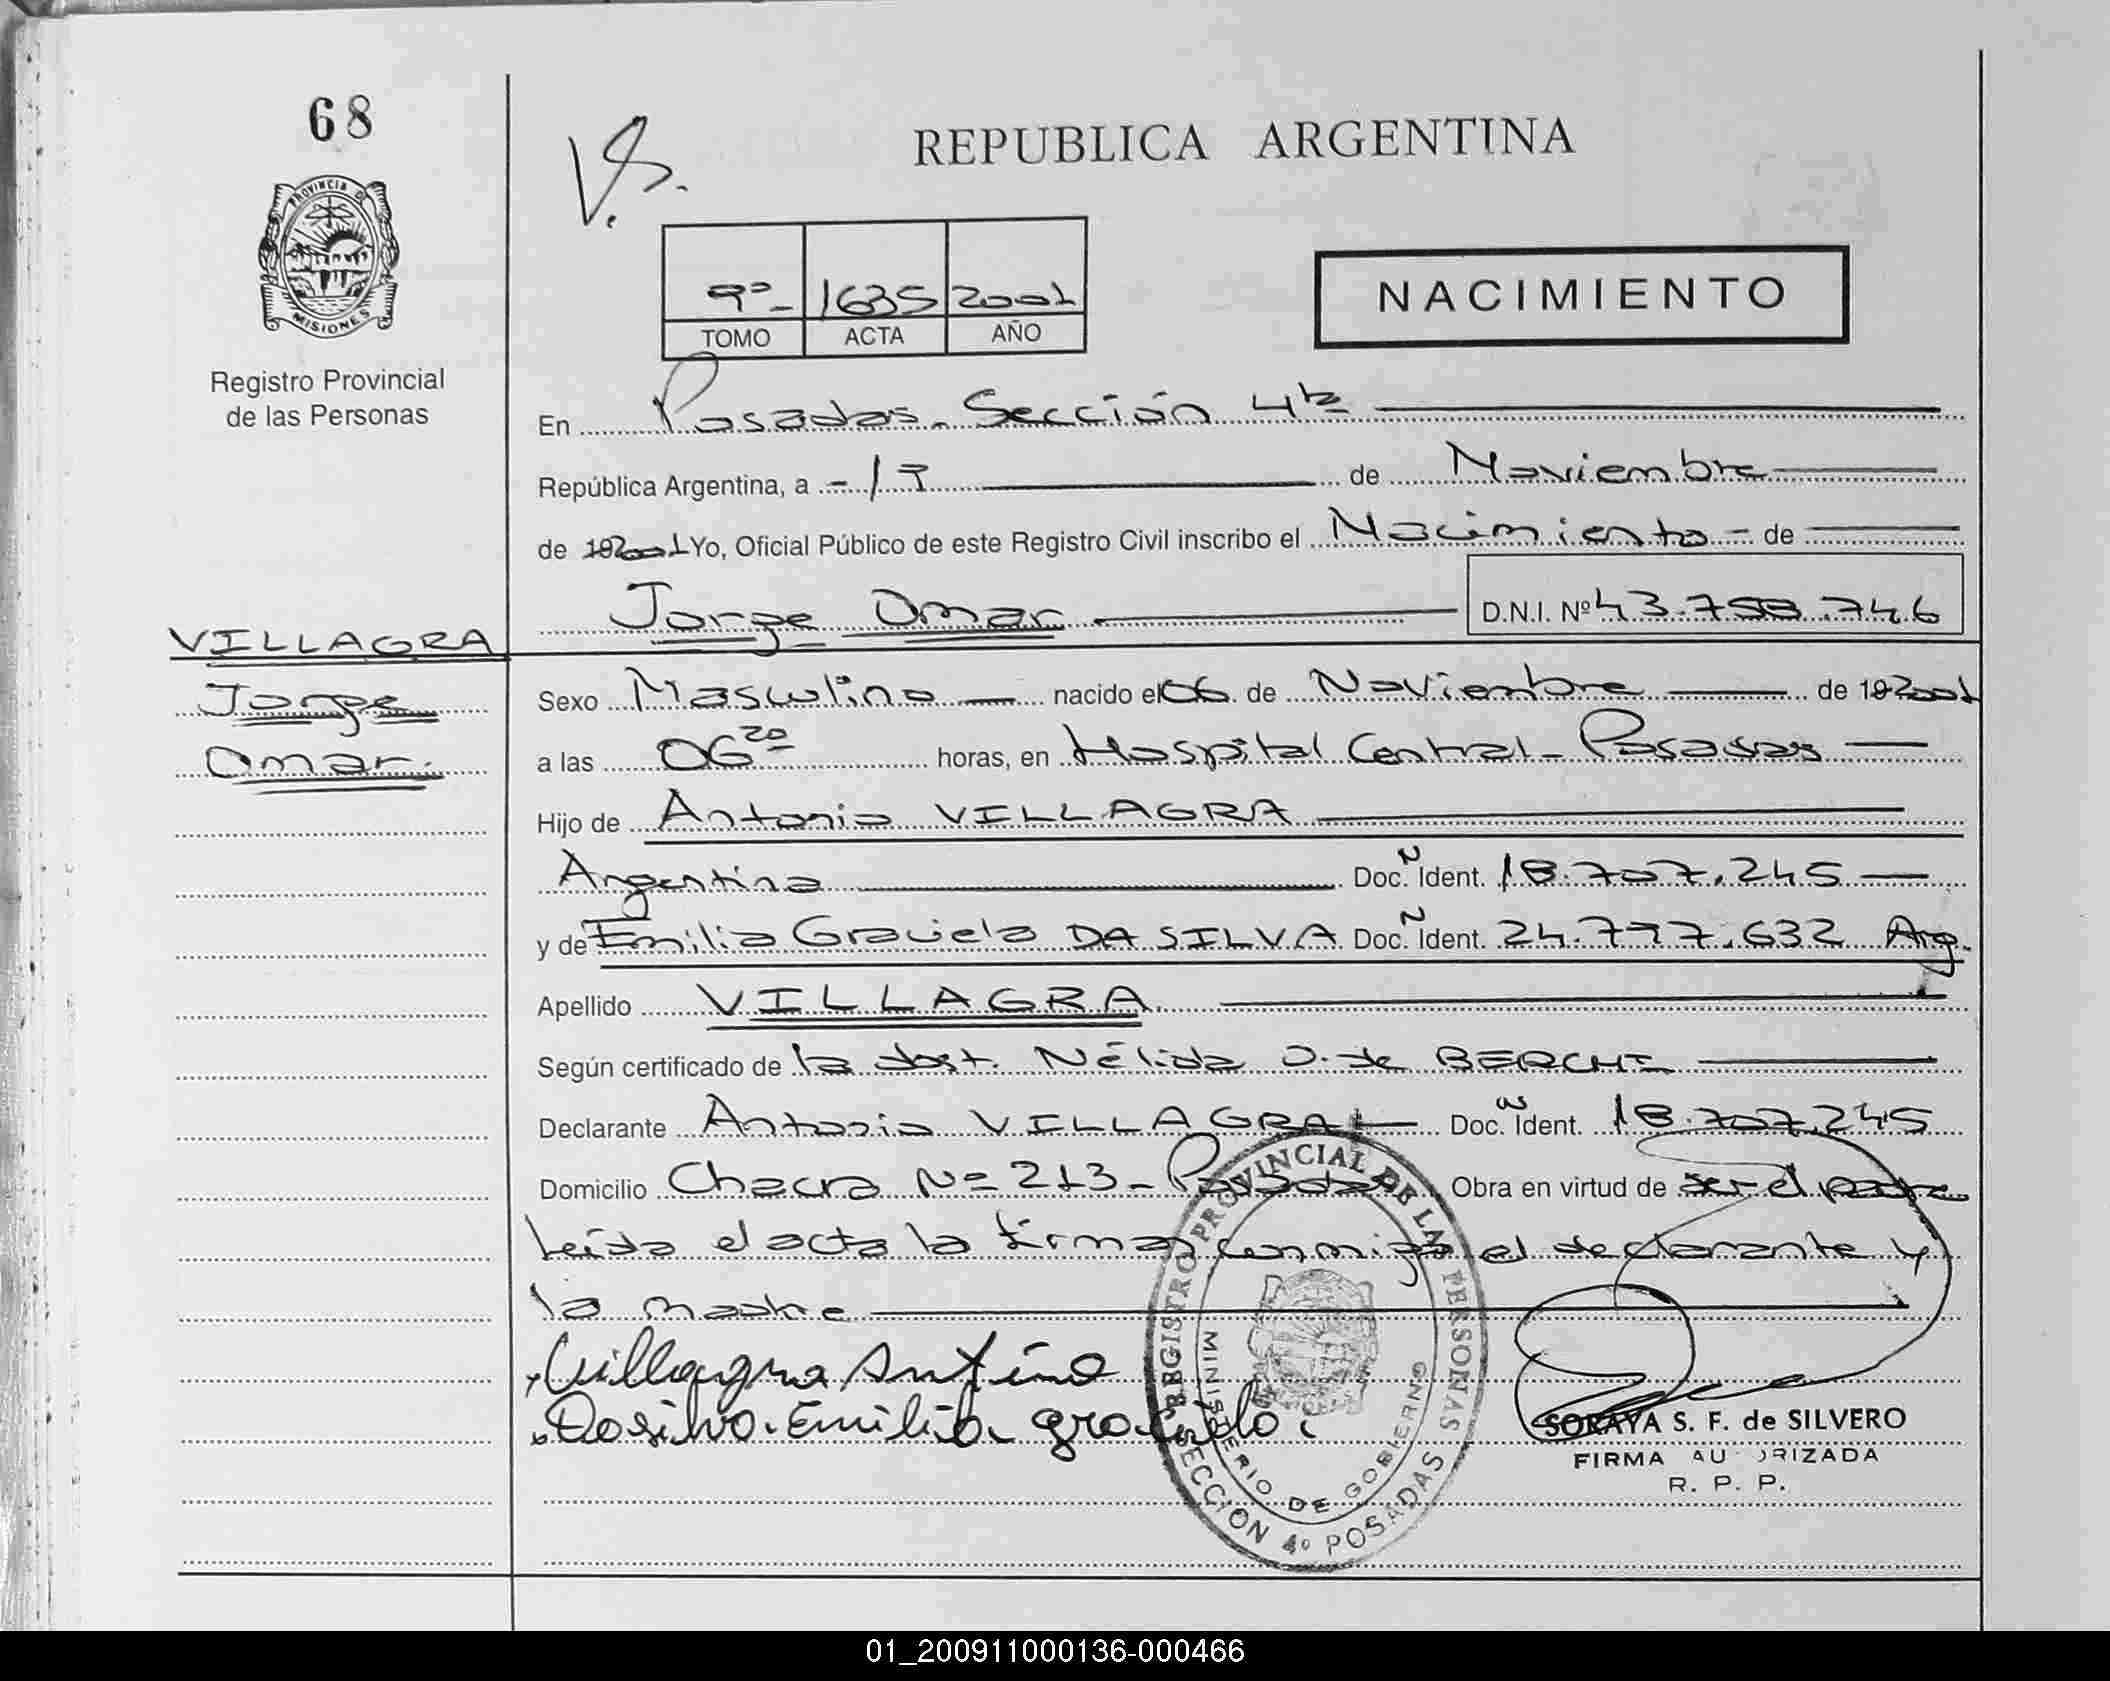 68
PROVINCIA DE
MISIONES
Registro Provincial
de las Personas
V.S.
REPUBLICA ARGENTINA
9º- 1635 2001
TOMO ACTA AÑO
NACIMIENTO
En Posadas. Sección 4ta
República Argentina, a -17 de Noviembre
de 192001 Yo, Oficial Público de este Registro Civil inscribo el Nacimiento - de
Jorge Omar D.N.I. Nº 43.758.746
VILLAGRA
Jorge
Omar.
Sexo Masculino nacido el 06 de Noviembre de 192001
a las 06 20 horas, en Hospital Central - Posadas
Hijo de Antonio VILLAGRA
Argentina Doc. N Ident. 18.707.245
y de Emilia Graciela DA SILVA Doc. N Ident. 24.777.632 Arg.
Apellido VILLAGRA
Según certificado de la obst. Nélida O. de BERCHI
Declarante Antonio VILLAGRA Doc. N Ident. 18.707.245
Domicilio Chacra Nº 213 - Posadas Obra en virtud de ser el padre
Leída el acta la firman conmigo el declarante y
la madre
Villagra Antonio
Dasilva Emilia graciela
REGISTRO PROVINCIAL DE LAS PERSONAS
MINISTERIO DE GOBIERNO
SECCIÓN 4º POSADAS
SORAYA S. F. de SILVERO
FIRMA AUTORIZADA
R. P. P.
01_200911000136-000466